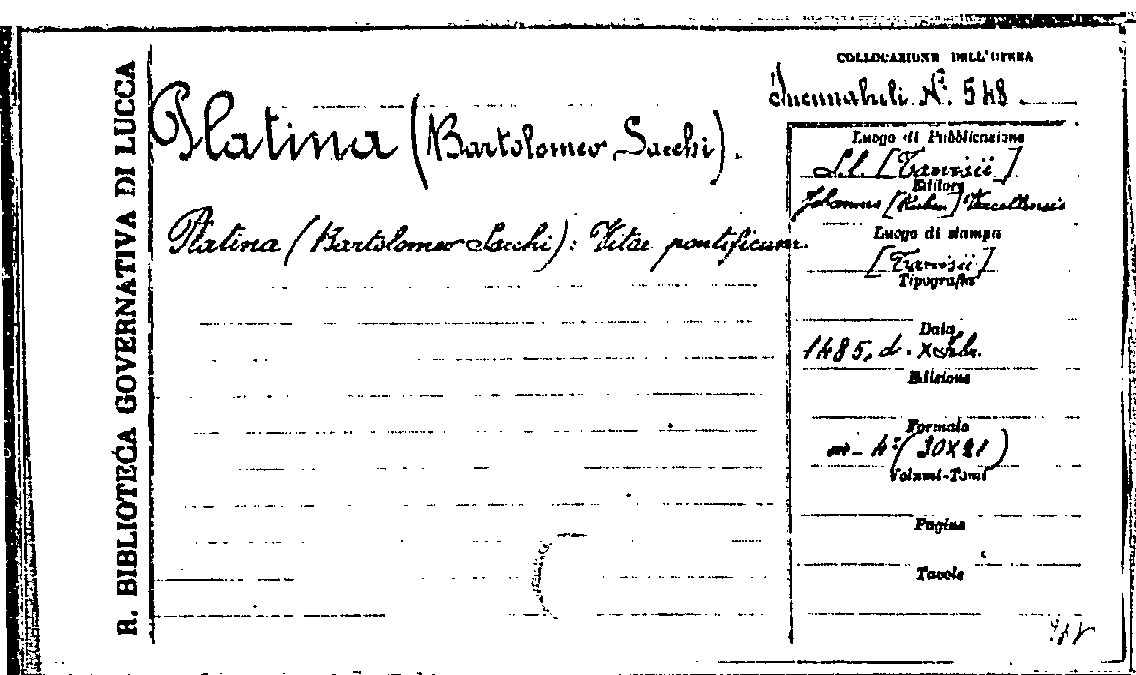 R. BIBLIOTECA GOVERNATIVA DI LUCCA
COLLOCAZIONE DELL'OPERA
Incunabuli. N.° 548
Platina (Bartolomeo Sacchi).
Platina (Bartolomeo Sacchi): Vitae pontificum.
Luogo di Pubblicazione
S.l. [Tarvisii]
Editore
Johannes [Ruben] Vercellensis
Luogo di stampa
[Tarvisii]
Tipografia
Data
1485, d.
Edizione
Formato
in-4° (30x21)
Volumi-Tomi
Pagine
Tavole